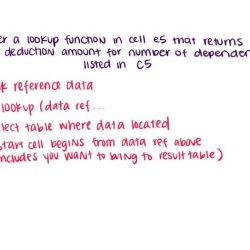 er a lookup function in cell e5 that returns
deduction amount for number of dependen
listed in C5
k reference data
lookup (data ref...
lect table where data located
start cell begins from data ref above
includes you want to bring to result table)